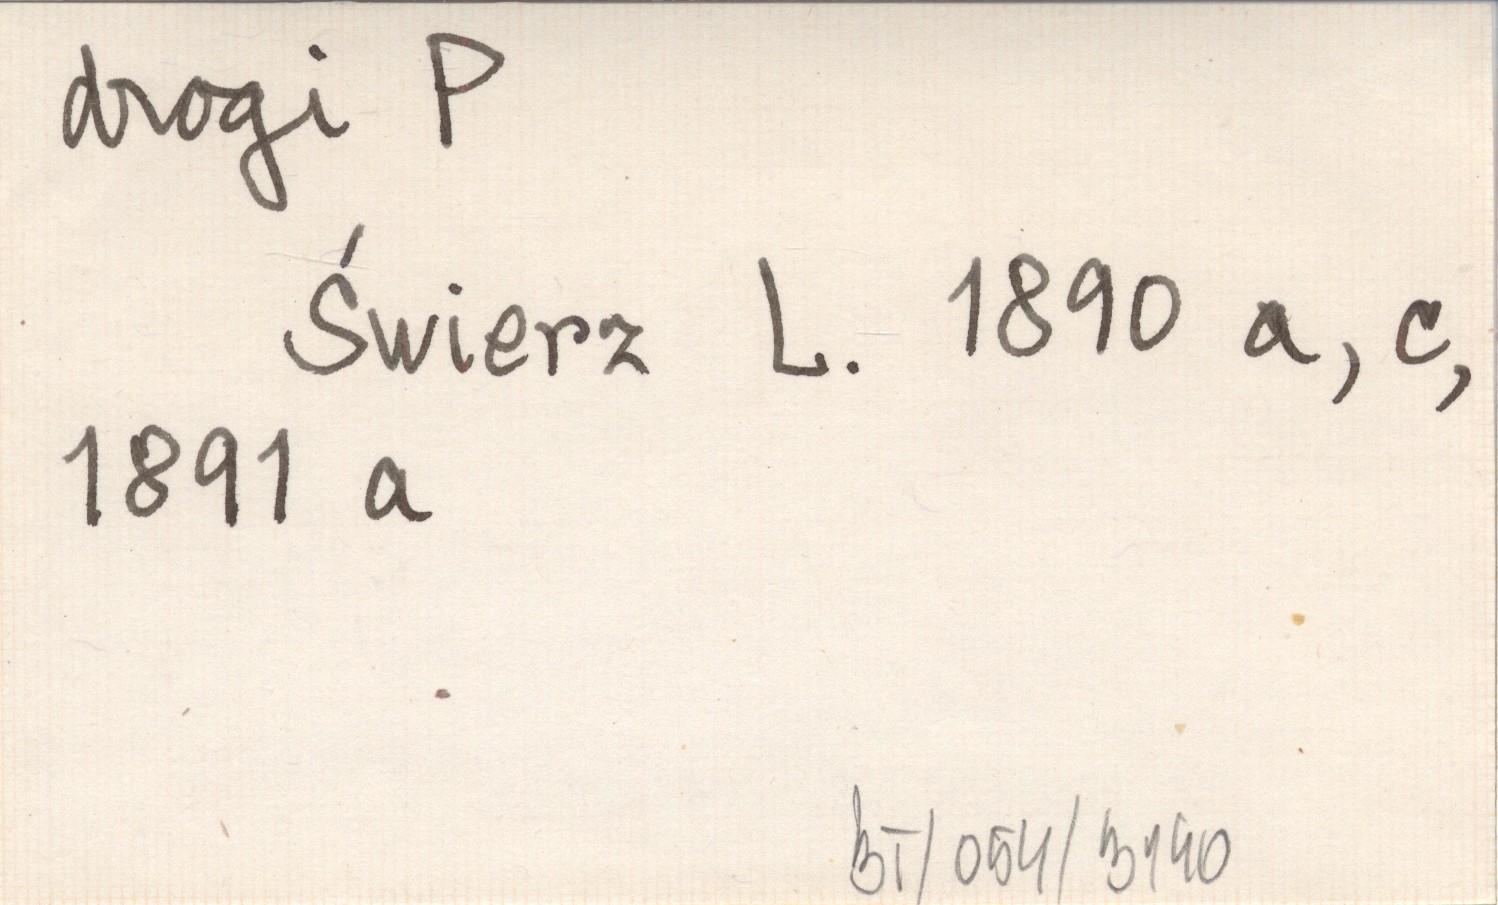 drogi P
Świerz L. 1890 a, c,
1891 a
BT/054/3140